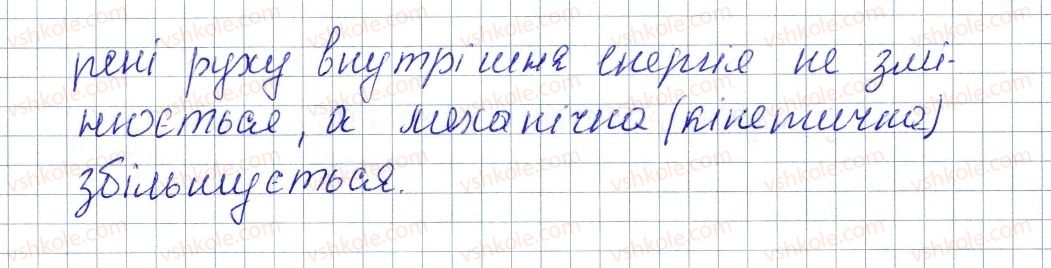 рені руху внутрішня енергія не змі-
нюється, а механічна (кінетична)
збільшується.